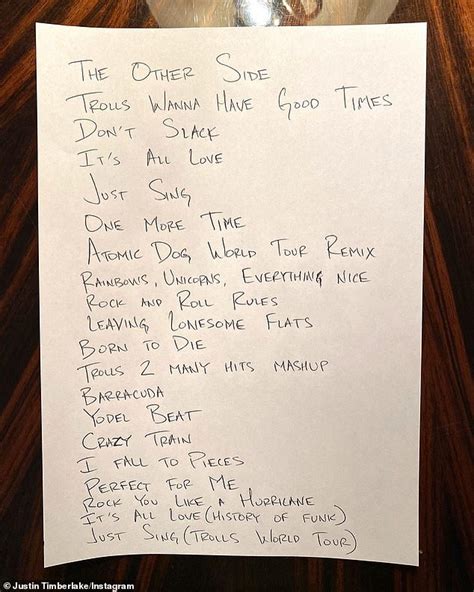 The Other Side
Trolls Wanna Have Good Times
Don't Slack
It's All Love
Just Sing
One More Time
Atomic Dog World Tour Remix
Rainbows, Unicorns, Everything Nice
Rock and Roll Rules
Leaving Lonesome Flats
Born to Die
Trolls 2 Many Hits Mashup
Barracuda
Yodel Beat
Crazy Train
I Fall to Pieces
Perfect for Me
Rock You Like a Hurricane
It's All Love (History of Funk)
Just Sing (Trolls World Tour)
© Justin Timberlake/Instagram